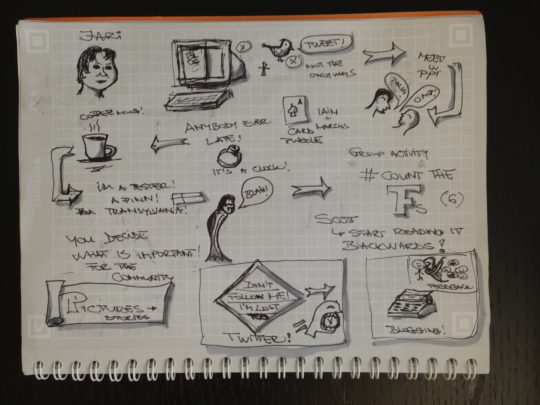 JARI
TWEET!
NOT THE
ONLY WAYS
MEET
W
PPL
COFFEE MUG!
ANYBODY EVER
LATE!
IAIN
+
MARCUS
CARD
PUZZLE
TALK!
IT'S A CLOCK!
GROUP ACTIVITY
# COUNT THE
F
(6)
I'M A TESTER!
A FINN!
TRANSYLVANIA!
BLAH!
SCOTT
↳ START READING IT
BACKWARDS!
YOU DECIDE
WHAT IS IMPORTANT!
FOR THE
COMMUNITY
PICTURES +
STORIES
DON'T
FOLLOW ME!
I'M LOST
TOO
TWITTER!
FEEDBACK
BLOGGING!